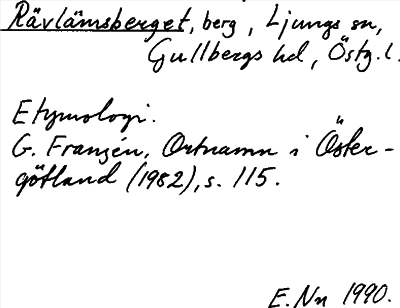 Rävlämsberget, berg, Ljungs sn,
Gullbergs hd, Östg. l.
Etymologi.
G. Franzén, Ortnamn i Öster-
götland (1982), s. 115.
E. Nn 1990.